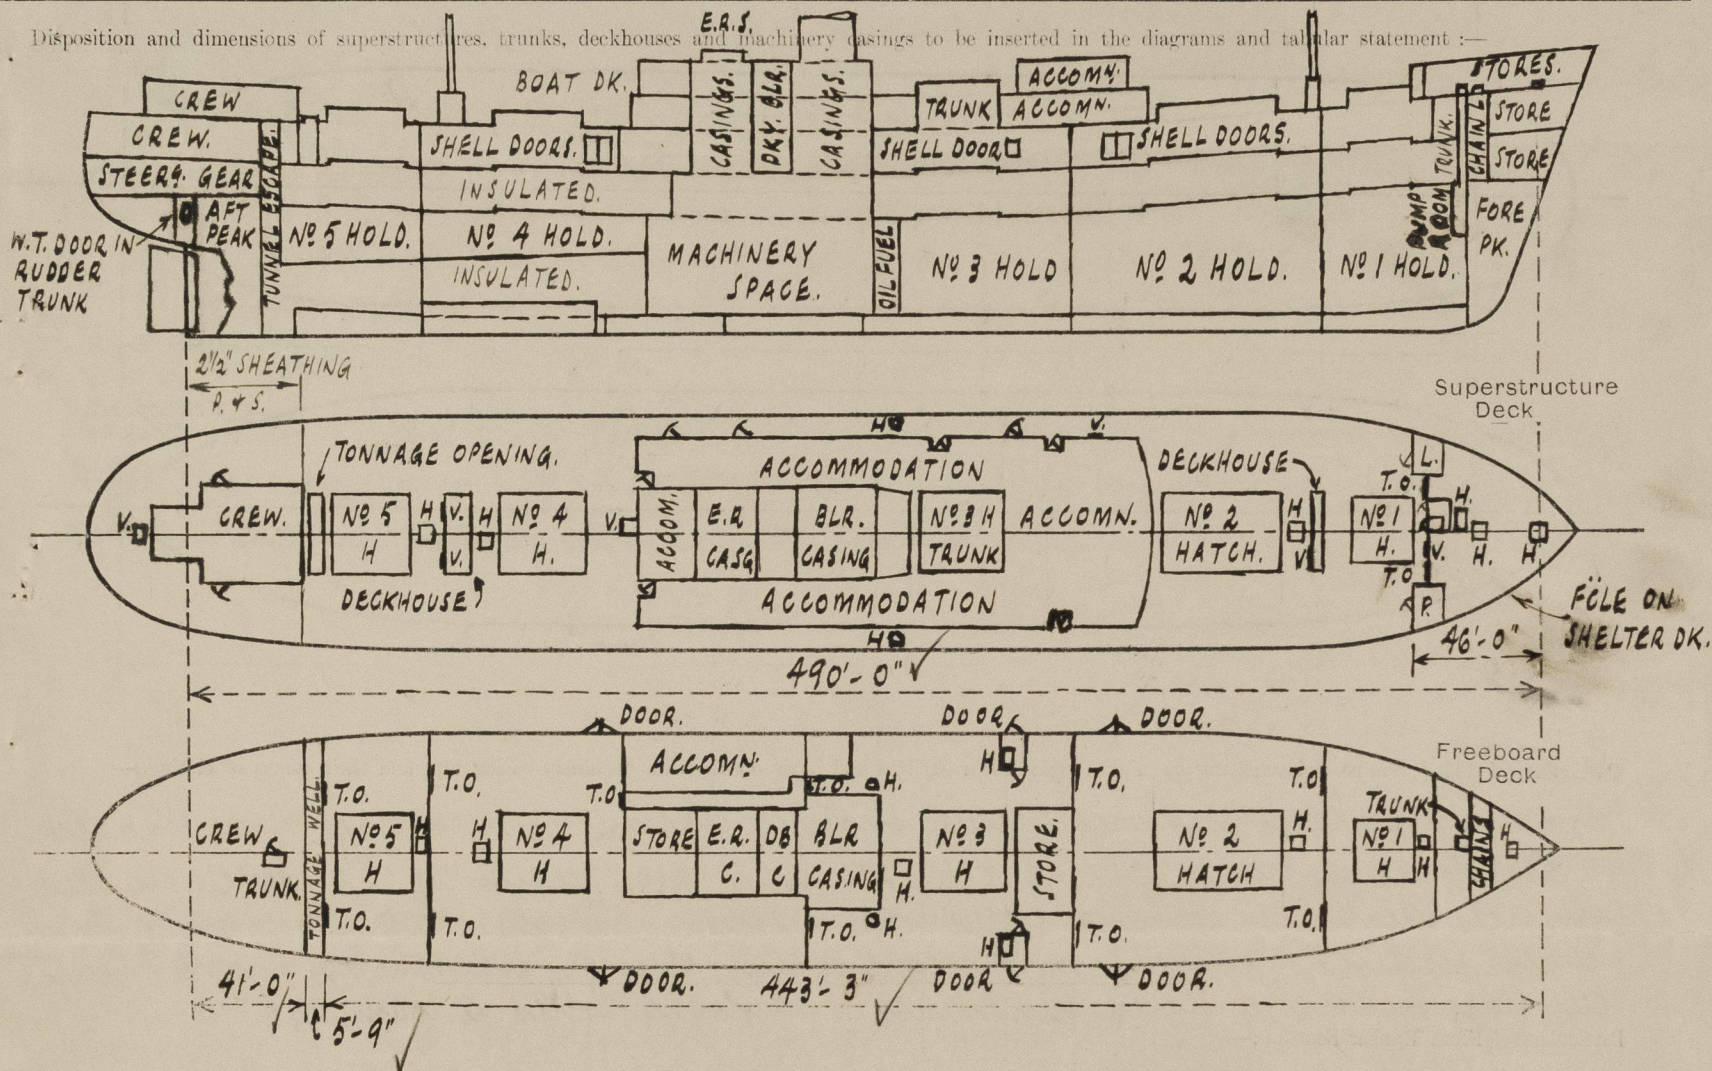 Disposition and dimensions of superstructures, trunks, deckhouses and machinery casings to be inserted in the diagrams and tabular statement :—
E.R.S.
BOAT DK.
CREW
CREW.
STEERG. GEAR
AFT
PEAK
TUNNEL ESCAPE.
W.T. DOOR IN
RUDDER
TRUNK
SHELL DOORS.
INSULATED.
Nº 5 HOLD.
Nº 4 HOLD.
INSULATED.
CASINGS.
DKY. BLR.
CASINGS.
MACHINERY
SPACE.
OIL FUEL
TRUNK
ACCOMN.
ACCOMN.
SHELL DOOR
SHELL DOORS.
Nº 3 HOLD
Nº 2 HOLD.
Nº 1 HOLD.
PUMP
ROOM
TRUNK.
CHAIN L
STORES.
STORE
STORE
FORE
PK.
2½" SHEATHING
P. & S.
Superstructure
Deck
TONNAGE OPENING.
V.
CREW.
Nº 5
H
H
V.
V.
H
DECKHOUSE
Nº 4
H.
V.
ACCOMMODATION
ACCOM.
E.R
CASG
BLR.
CASING
Nº 3 H
TRUNK
ACCOMN.
ACCOMMODATION
H
H
V.
DECKHOUSE
Nº 2
HATCH.
H
V
Nº 1
H.
T.O.
T.O
L.
P.
H.
V.
H.
H.
FCLE ON
SHELTER DK.
46'-0"
490'-0"
Freeboard
Deck
DOOR.
DOOR
DOOR.
CREW
TRUNK.
TONNAGE WELL.
T.O.
T.O.
Nº 5
H
H
T.O.
T.O.
H
Nº 4
H
T.O
ACCOMN.
STORE
E.R.
C.
DB
C
BLR
CASING
T.O.
H.
T.O.
H.
H.
Nº 3
H
H
H
STORE.
T.O.
T.O.
Nº 2
HATCH
H.
T.O
T.O.
Nº 1
H
H
TRUNK
CHAINS
H
DOOR.
DOOR
DOOR.
41'-0"
5'-9"
443'-3"